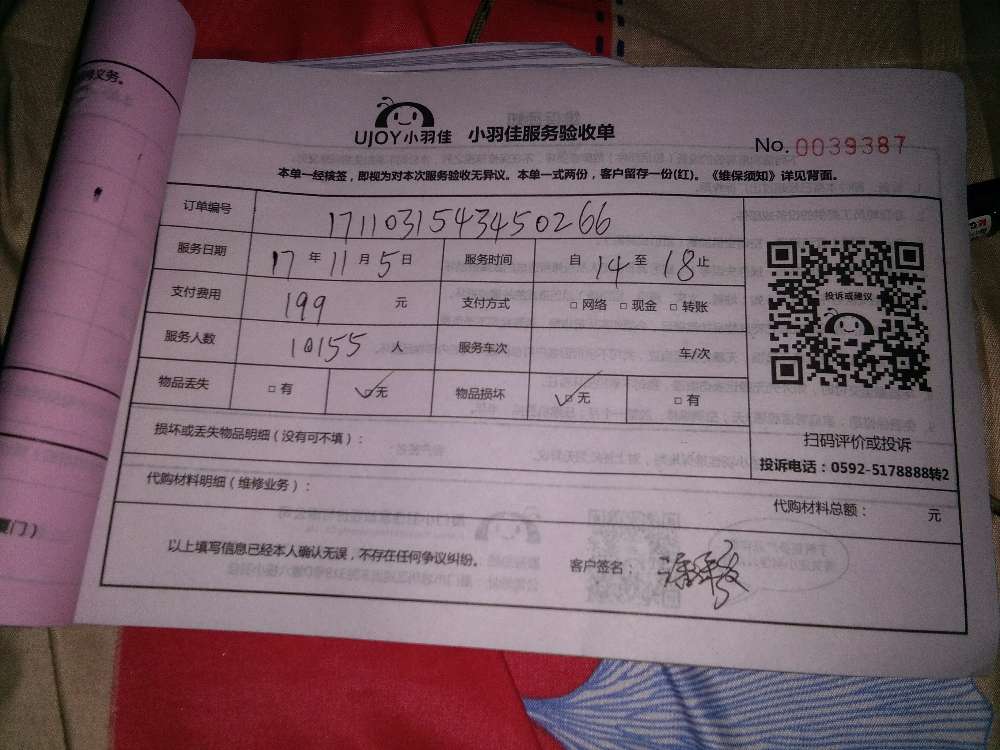 务。
UJOY小羽佳 小羽佳服务验收单
No. 0039387
本单一经核签，即视为对本次服务验收无异议。本单一式两份，客户留存一份(红)。《维保须知》详见背面。
订单编号 1711031543450266
服务日期 17 年 11 月 5 日 服务时间 自 14 至 18 止
支付费用 199 元 支付方式 □ 网络 □ 现金 □ 转账
服务人数 10155 人 服务车次 车/次
物品丢失 □ 有 ☑ 无 物品损坏 ☑ 无 □ 有
投诉或建议
扫码评价或投诉
投诉电话：0592-5178888转2
损坏或丢失物品明细（没有可不填）：
代购材料明细（维修业务）：
代购材料总额： 元
以上填写信息已经本人确认无误，不存在任何争议纠纷。
客户签名：
门）